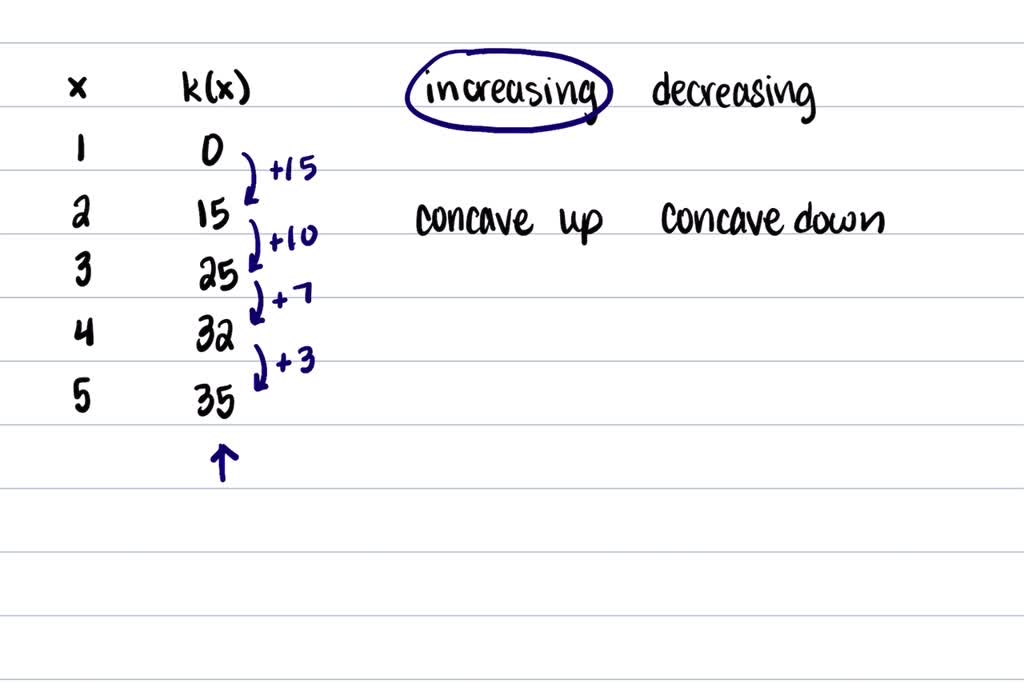 x k(x) increasing decreasing
1 0
+15
2 15 concave up concave down
+10
3 25
+7
4 32
+3
5 35